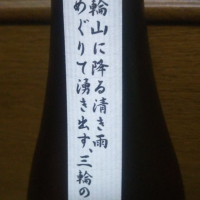 輪山に降る清き雨
めぐりて湧き出す、三輪の